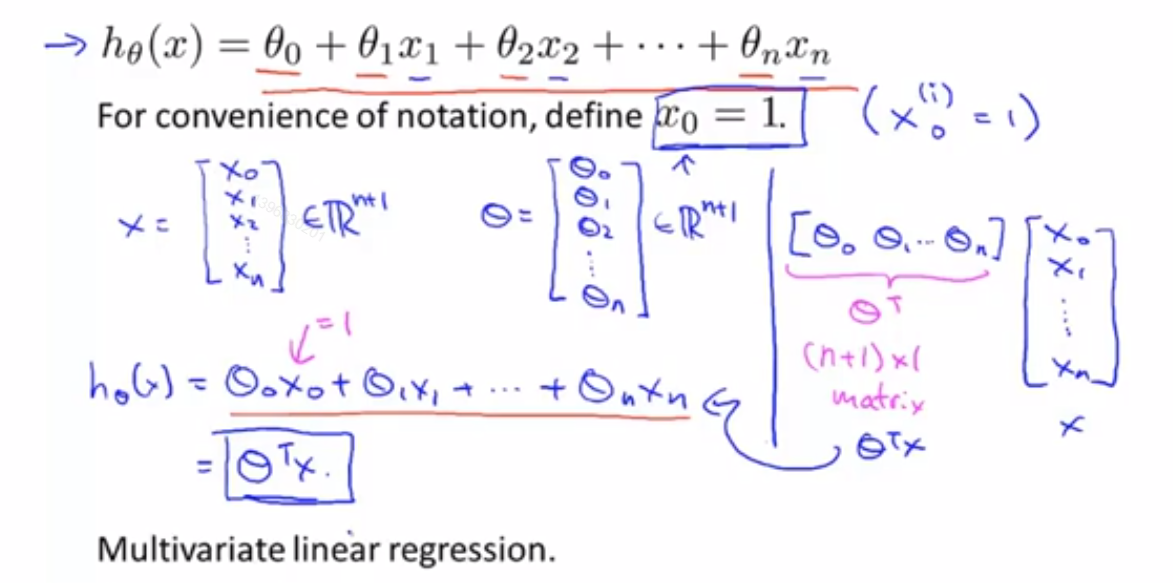 → hθ(x) = θ0 + θ1x1 + θ2x2 + ⋯ + θnxn
For convenience of notation, define x0 = 1. (x0^(i) = 1)
x = [x0 x1 x2 ⋮ xn] ∈ ℝ^(n+1)
θ = [θ0 θ1 θ2 ⋮ θn] ∈ ℝ^(n+1)
[θ0 θ1 ⋯ θn] [x0 x1 ⋮ xn]
θ^T
(n+1)×1
matrix
x
θ^T x
= 1
hθ(x) = θ0x0 + θ1x1 + ⋯ + θnxn
= θ^T x.
Multivariate linear regression.